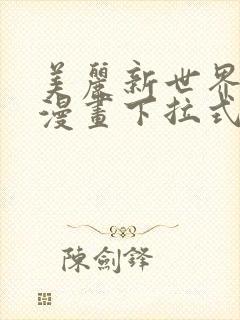 美麗新世界
漫畫下拉式
陳劍鋒